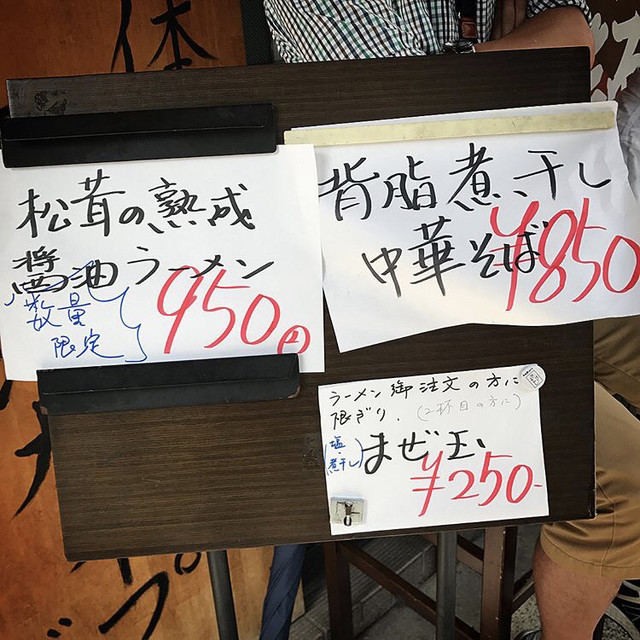 松茸の熟成
醤油ラーメン
数量
限定
950
背脂煮干し
中華そば
¥850
ラーメン御注文の方に
限ぎり、(2杯目の方に)
塩
煮干し
まぜ玉
¥250-